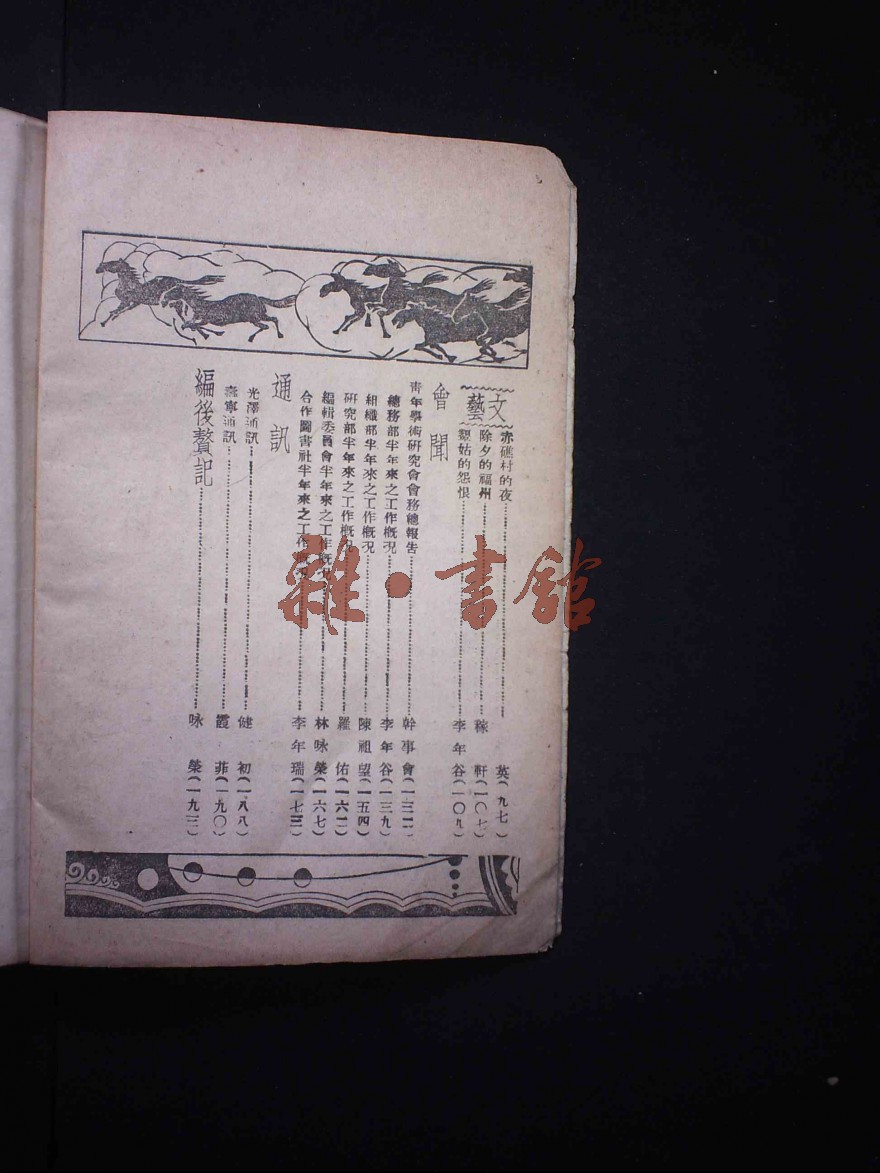 文藝
赤礁村的夜……英(九七)
除夕的福州……稼軒(一〇七)
姑的怨恨……李年谷(一〇九)
會聞
青年學術研究會會務總報告……幹事會(一三二)
總務部半年來之工作概況……李年谷(一三九)
組織部半年來之工作概況……陳祖望(一五四)
研究部半年來之工作概況……羅佑(一六二)
編輯委員會半年來之工作概況……林咏榮(一六七)
合作圖書社半年來之工作概況……李年瑞(一七三)
通訊
光澤通訊……健初(一八八)
寧通訊……霞菲(一九〇)
編後贅記……咏榮(一九二)
雜·書館